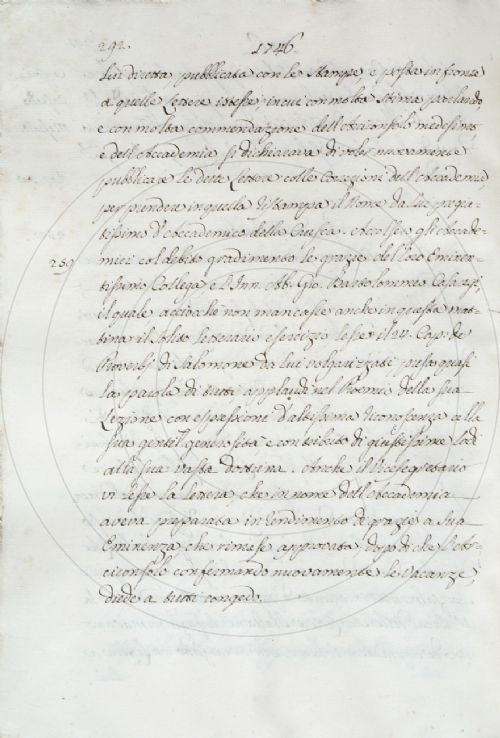 292.
1746.
Lui diretta, pubblicata con le Stampe, e posta in fronte
a quelle Lettere istesse, in cui con molta stima parlando,
e con molta commendazione dell'Arciconsolo medesimo
e dell'Accademia si dichiarava di voler nuovamente
pubblicare le dette Lettere colle Correzioni dell'Accademia,
per prendere in quella Ristampa il Nome da Lui pregia-
tissimo d'Accademico della Crusca. Accolsero gli Accade-
mici col debito gradimento le grazie del loro Eminen-
259
tissimo Collega, e l'Inn. Ab. Gio. Bartolommeo Casaregi,
il quale acciocchè non mancasse anche in questa mat-
tina il solito letterario esercizio lesse il 24. Cap. de
Proverbj di Salomone da lui volgarizzati, presa quasi
la parola di tutti applaudì nel Proemio della sua
Lezione con espressioni d'altissima riconoscenza alla
sua gentil generosità, e con tributo di giustissime lodi
alla sua vasta dottrina. Anche il Vicesegretario
vi lesse la Lettera, che in nome dell'Accademia
aveva preparata in rendimento di grazie a Sua
Eminenza, che rimase approvata, dopo di che l'Ar-
ciconsolo confermando nuovamente le Vacanze,
diede a tutti congedo.